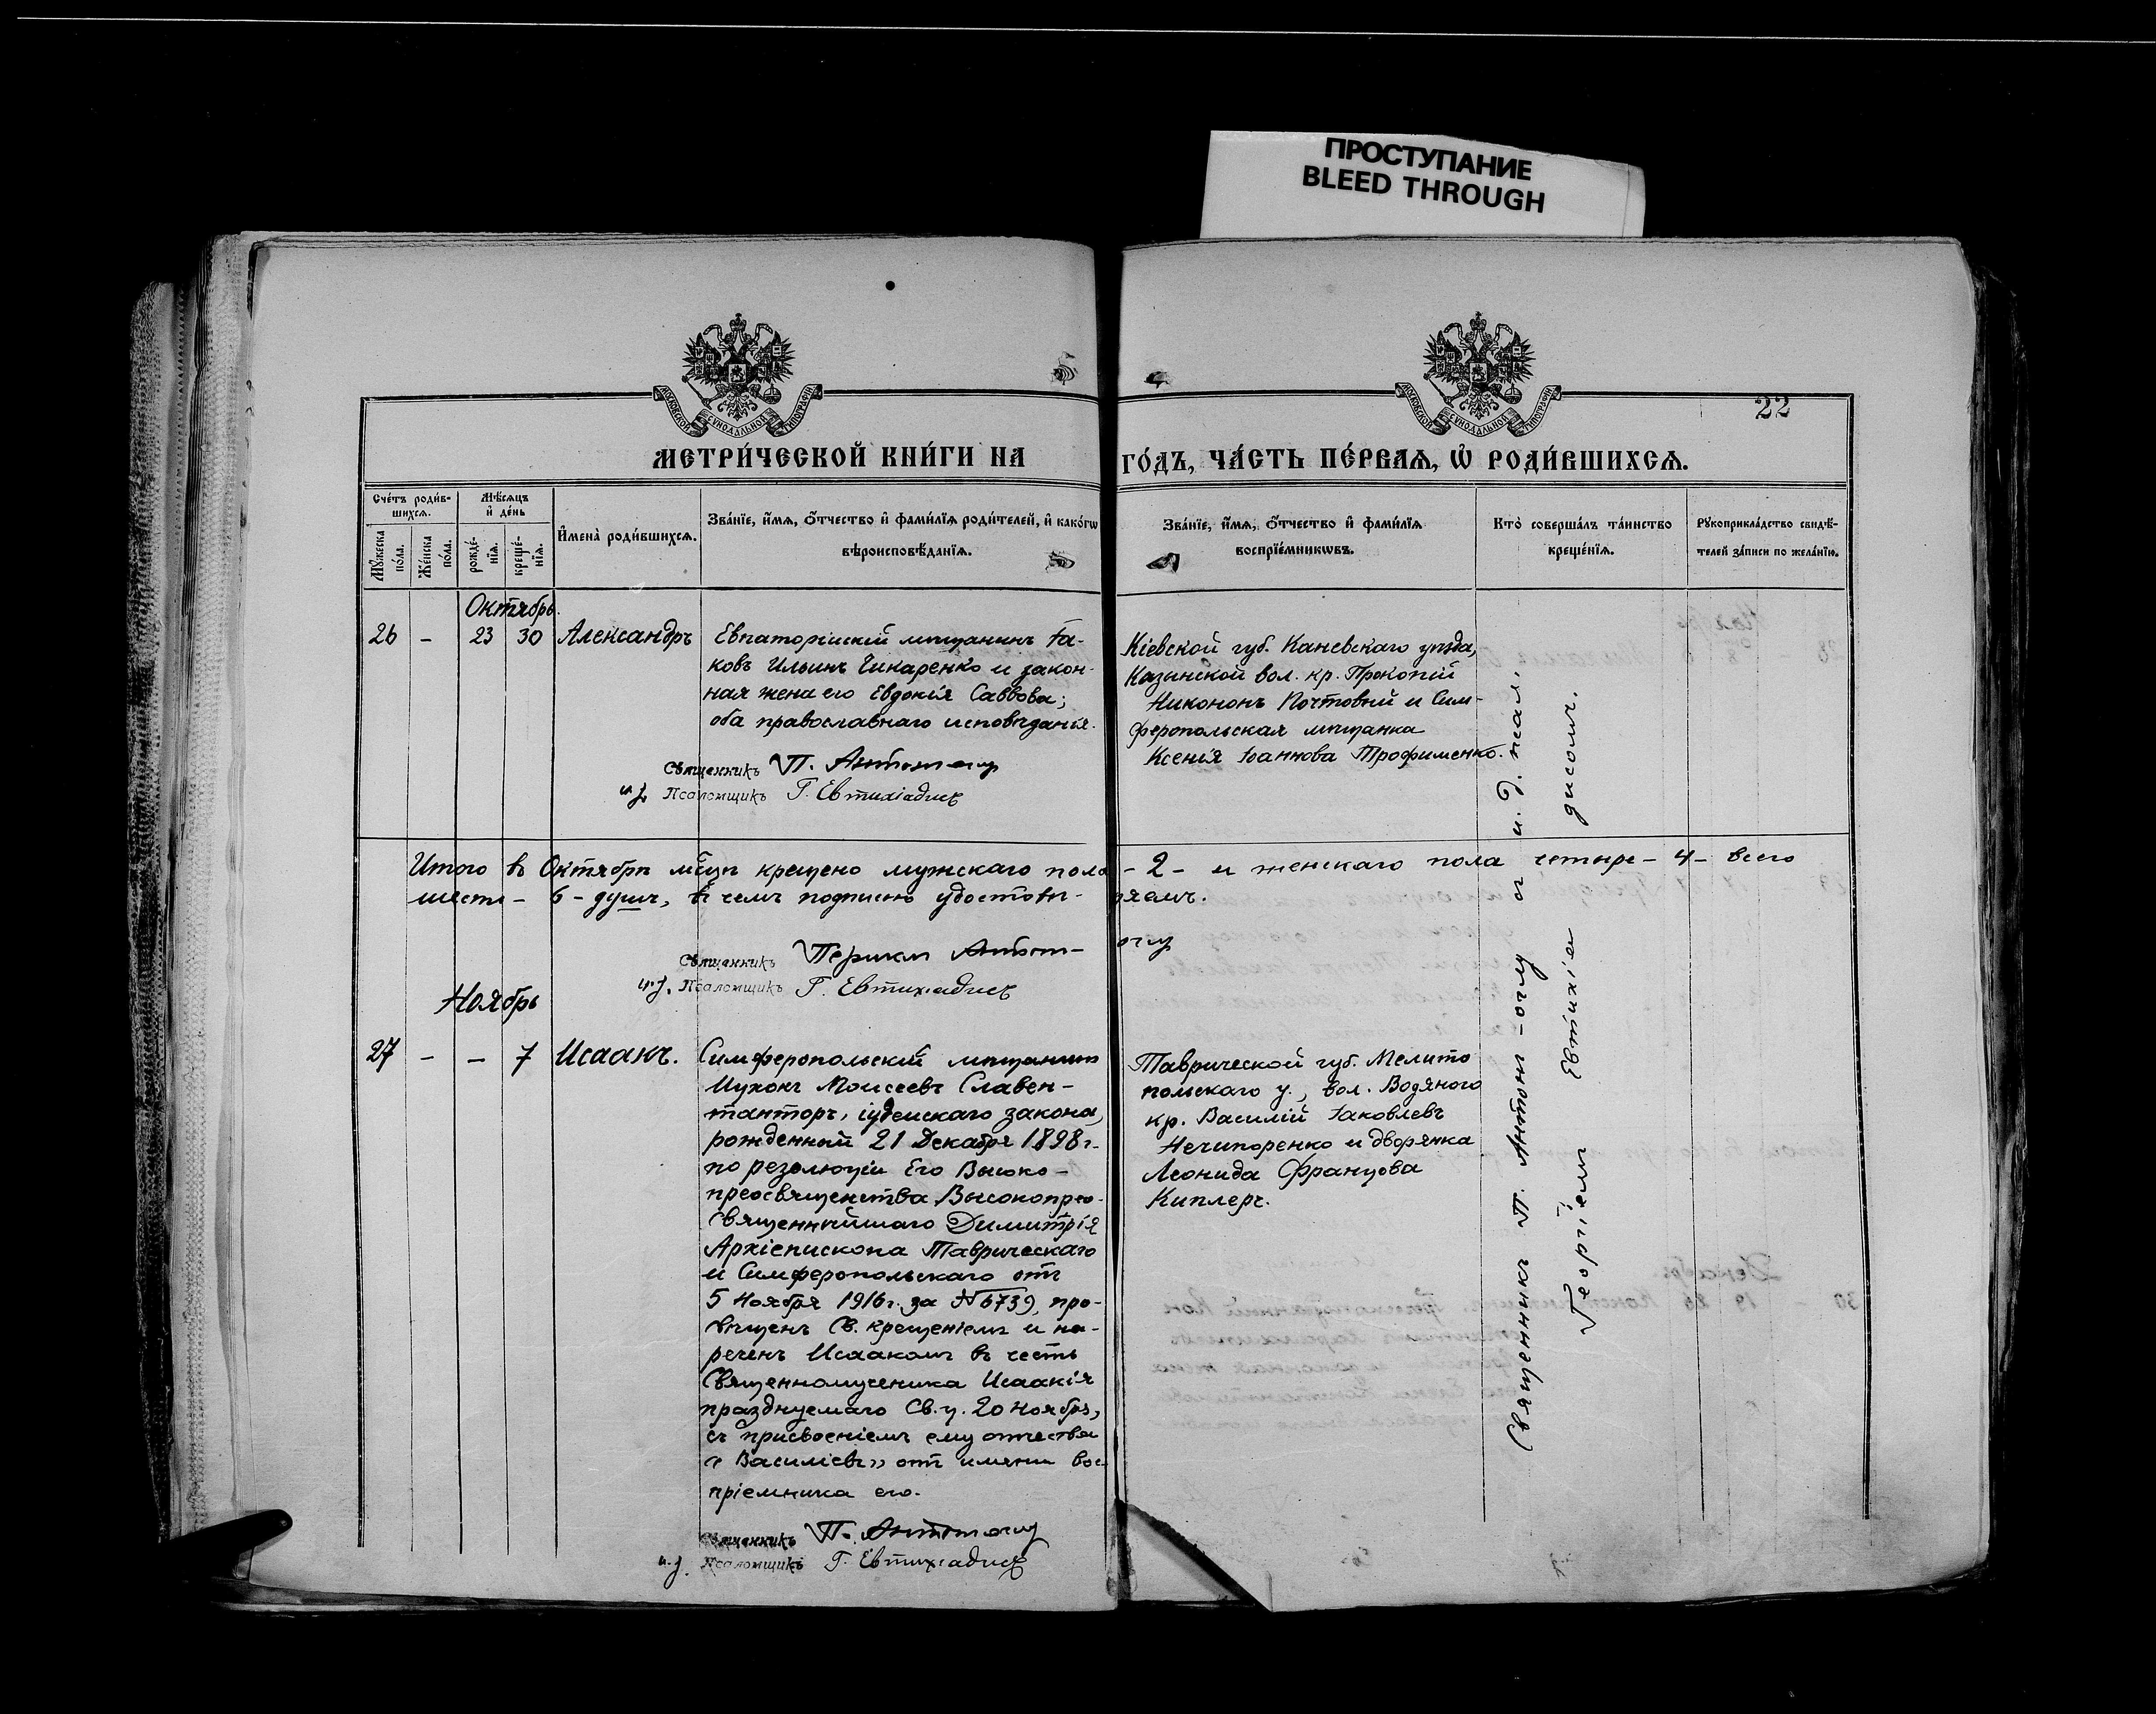 ПРОСТУПАНИЕ
BLEED THROUGH
МОСКОВСКОЙ СѴНОДАЛЬНОЙ ТИПОГРАФІИ
МОСКОВСКОЙ СѴНОДАЛЬНОЙ ТИПОГРАФІИ
22
МЕТРИ́ЧЕСКОЙ КНИ́ГИ НА
ГО́ДЪ, ЧА́СТЬ ПЕ́РВАѦ, Ѡ РОДИ́ВШИХСѦ.
Сче́тъ роди́в-
шихсѧ.
Мѣ́сѧцъ
и҆ де́нь
Мꙋ́жеска
по́ла.
Же́нска
по́ла.
рожде́-
нїѧ.
креще́-
нїѧ.
И҆мена̀ роди́вшихсѧ.
Зва́нїе, и҆́мѧ, ѻ҆́тчество и҆ фами́лїѧ роди́телей, и҆ како́гѡ
вѣроисповѣ́данїѧ.
Зва́нїе, и҆́мѧ, ѻ҆́тчество и҆ фами́лїѧ
воспрїе́мникѡвъ.
Кто̀ соверша́лъ та́инство
креще́нїѧ.
Рꙋкоприкла́дство свидѣ́-
телей за́писи по жела́нїю.
Октябрь.
26 - 23 30 Александръ
Евпаторійскій мѣщанинъ Іа-
ковъ Ильинъ Чикаренко и закон-
ная жена его Евдокія Саввова;
оба православнаго исповѣданія.
Священникъ П. Антон-оглу
и. д. Псаломщикъ Г. Евтихіадисъ
Кіевской губ. Каневскаго уѣзда,
Казинской вол. кр. Прокопій
Никононъ Почтовый и Сим-
феропольская мѣщанка
Ксенія Іоаннова Трофименко.
Итого въ Октябрѣ м͠цѣ крещено мужскаго пола - 2 - и женскаго пола четыре - 4 - всего
шесть - 6 - душъ, въ чемъ подписью удостовѣ- ряемъ.
Священникъ Периклъ Антон- оглу
и. д. Псаломщикъ Г. Евтихіадисъ
Ноябрь
27 - - 7 Исаакъ.
Симферопольскій мѣщанинъ
Нухонъ Моисеевъ Славен-
танторъ, іудейскаго закона,
рожденный 21 Декабря 1898 г.
по резолюціи Его Высоко-
преосвященства, Высокопрео-
священнѣйшаго Димитрія
Архіепископа Таврическаго
и Симферопольскаго отъ
5 Ноября 1916 г. за № 6739, про-
свѣщенъ Св. крещеніемъ и на-
реченъ Исаакомъ въ честь
Священномученика Исаакія
празднуемаго Св. ц. 20 Ноября,
съ присвоеніемъ ему отчества
«Василіевъ» отъ имени вос-
пріемника его.
Священникъ П. Антон-оглу
и. д. Псаломщикъ Г. Евтихіадисъ
Таврической губ. Мелито
польскаго у., вол. Водяного
кр. Василій Іаковлевъ
Нечипоренко и дворянка
Леонида Францова
Киплеръ.
Священникъ П. Антон-оглу съ и. д. псал.
Георгіемъ Евтихіадисомъ.